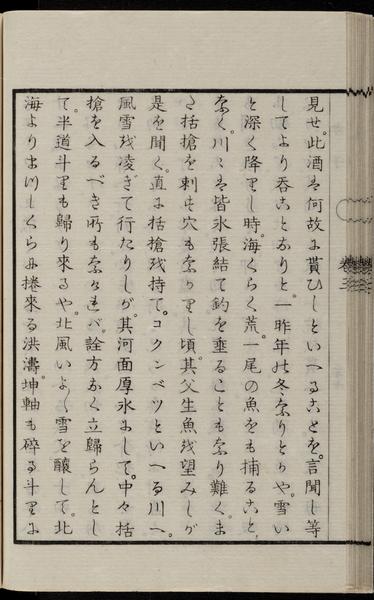 見せ。此酒は何故に貰ひしといへることを。言聞し等
してより呑ことなりと。一昨年の冬なりとかや。雪い
と深く降りし時。海くらく荒。一尾の魚をも捕ること
なく。川々は皆氷張結て釣を垂ることもなり難く。ま
た括槍を刺す穴もなかりし頃。其父生魚を望みしが
是を聞く。直に括槍を持て。コクンベツといへる川へ。
風雪を凌ぎて行たりしが。其河面厚氷にして。中々括
槍を入るべき所もなければ。詮方なく立歸らんとし
て。半道斗りも歸り來るや。北風いよ〳〵雪を釀して。北
海より吹しくらみ捲來る洪濤。坤軸も碎る斗りに